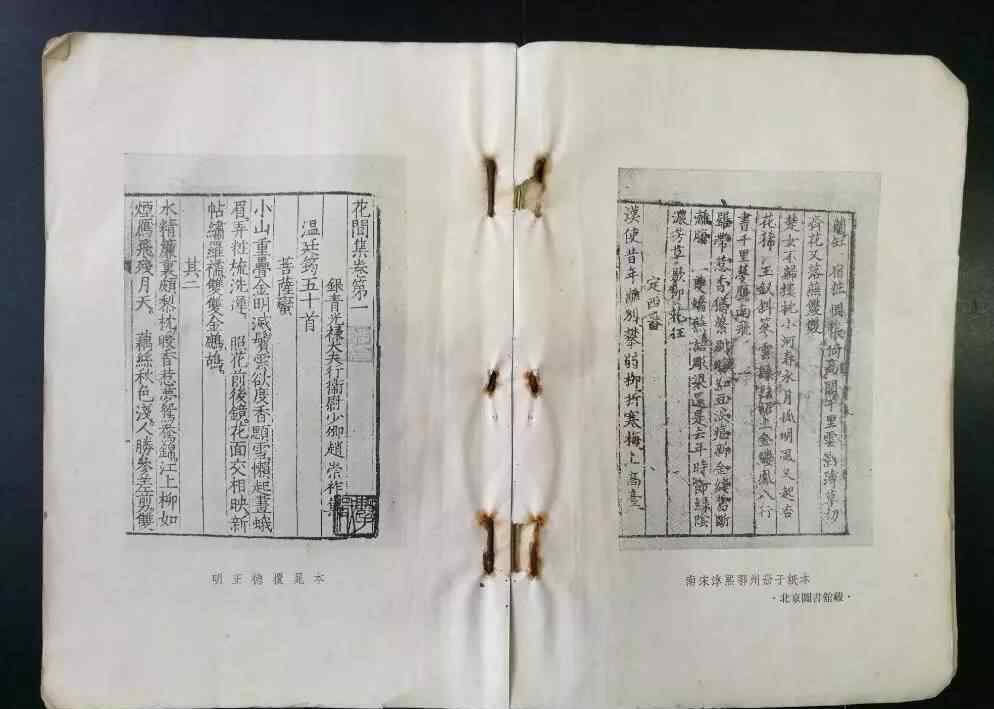 花間集卷第一
銀青光祿大夫行衞尉少卿趙崇祚集
溫廷筠五十首
菩薩蠻
小山重疊金明滅鬢雲欲度香顋雪懶起畫蛾
眉弄粧梳洗遲 照花前後鏡花面交相映新
帖繡羅襦雙雙金鷓鴣
其二
水精簾裏頗黎枕暖香惹夢鴛鴦錦江上柳如
煙鴈飛殘月天 藕絲秋色淺人勝參差剪雙
明正德覆晁本
千里雲影薄草初
齊花又落燕雙雙
楚女不歸樓枕小河春水月孤明風又起杏
花稀 玉釵斜篸雲鬟髻上金縷鳳八行
書千里夢鴈南飛
羅帶惹香猶繫別時紅豆淚痕新金縷舊斷
離腸 一雙嬌燕語彫梁還是去年時節綠陰
濃芳草歇柳花狂
定西番
漢使昔年離別攀弱柳折寒梅上高臺
南宋淳熙鄂州册子紙本
·北京圖書館藏·